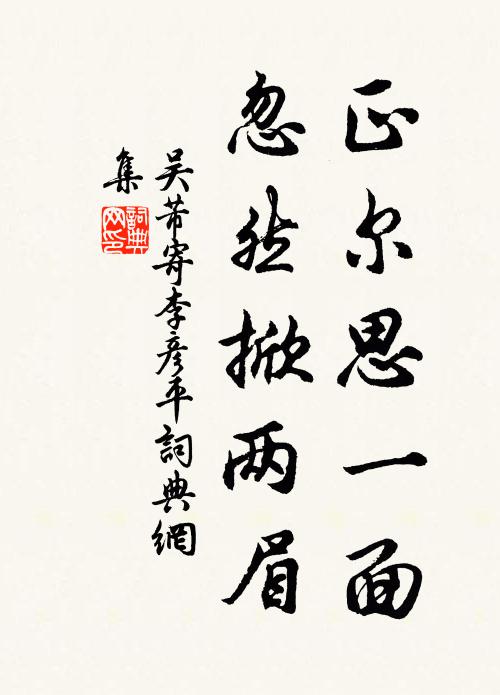 正尔思一面
忽然掀两眉
吴芾寄李彦平詞典網
集
詞典
网印